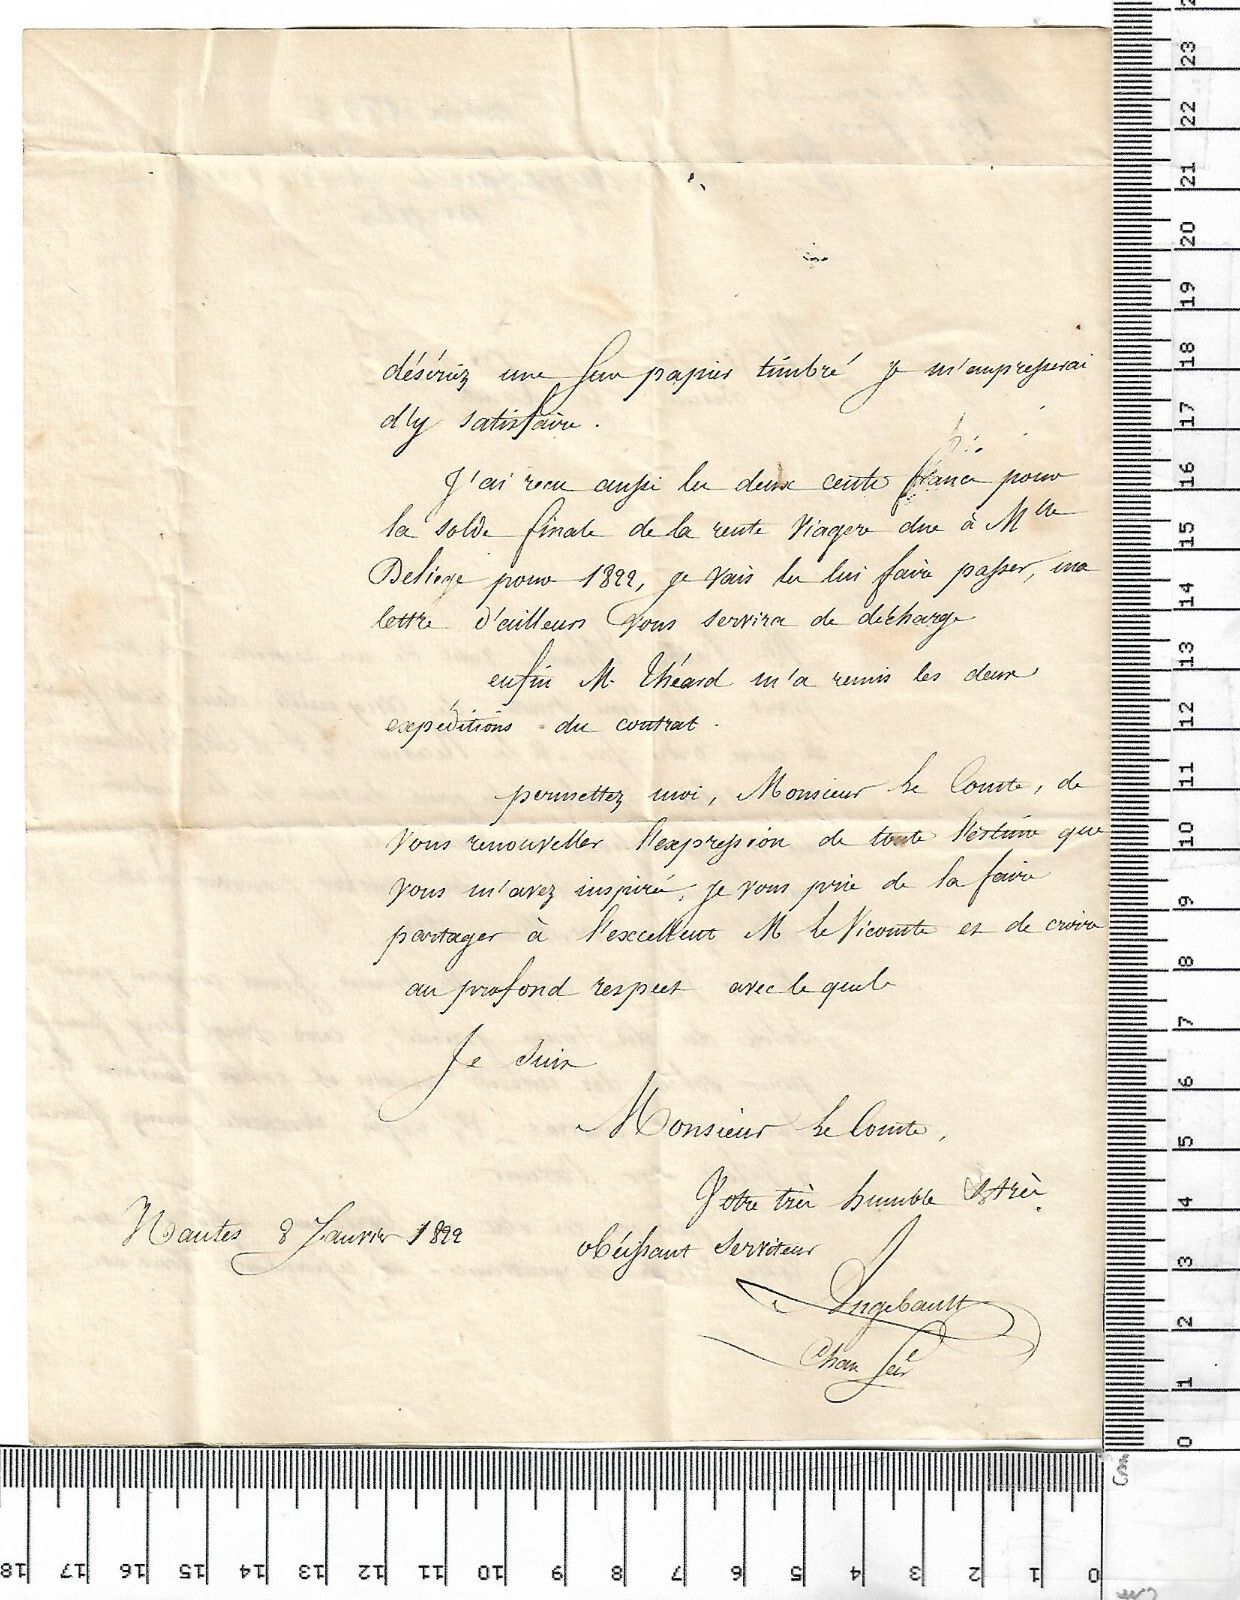 désiriez une sur papier timbré je m'empresserai
d'y satisfaire.
J'ai recu aussi les deux cents francs pour
la solde finale de la rente viagere due à Mlle
Deliege pour 1822, je vais les lui faire passer, ma
lettre d'ailleurs vous servira de décharge
enfin M. Théard m'a remis les deux
expéditions du contrat.
permettez moi, Monsieur Le Comte, de
vous renouveller l'expression de toute l'estime que
vous m'avez inspirée, je vous prie de la faire
partager à l'excellent M le Vicomte et de croire
au profond respect avec le quel
Je suis
Monsieur Le Comte,
Votre très humble & très
obéissant serviteur
Nantes 8 Janvier 1822
Angebault
Chan
23
22
21
20
19
18
17
16
15
14
13
12
11
10
9
8
7
6
5
4
3
2
1
0
cm
18
17
16
15
14
13
12
11
10
9
8
7
6
5
4
3
2
1
0
cm